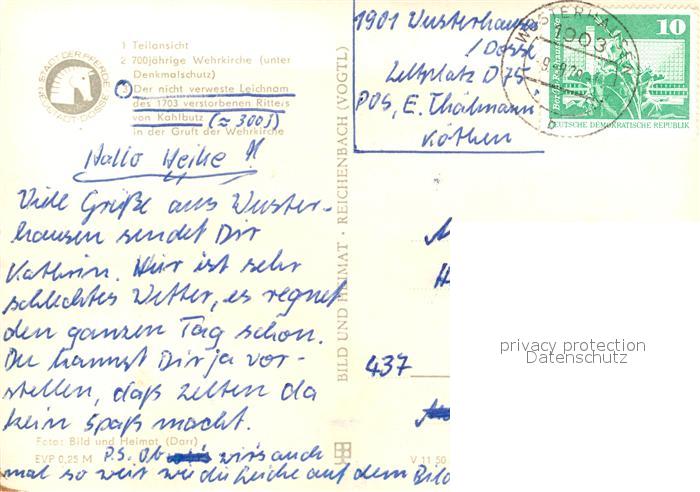 STADT DER PFERDE
NEUSTADT-DOSSE
1 Teilansicht
2 700jährige Wehrkirche (unter
Denkmalschutz)
3 Der nicht verweste Leichnam
des 1703 verstorbenen Ritters
von Kahlbutz (≈ 300J)
in der Gruft der Wehrkirche
Hallo Heike!!
Viele Grüße aus Wuster-
hausen sendet Dir
Kathrin. Hier ist sehr
schlechtes Wetter, es regnet
den ganzen Tag schon.
Du kannst Dir ja vor-
stellen, daß zelten da
kein Spaß macht.
Foto: Bild und Heimat (Darr)
EVP 0,25 M
P.S. Ob wir's auch
mal so weit wie die Leiche auf dem Bild
BILD UND HEIMAT · REICHENBACH (VOGTL)
V 11 50
1901 Wusterhausen
/ Dosse
Zeltplatz D 75
POS, E. Thälmann
Köthen
WUSTERHAUSEN
1903
10
Berlin, Rathausstraße
DEUTSCHE DEMOKRATISCHE REPUBLIK
437
privacy protection
Datenschutz